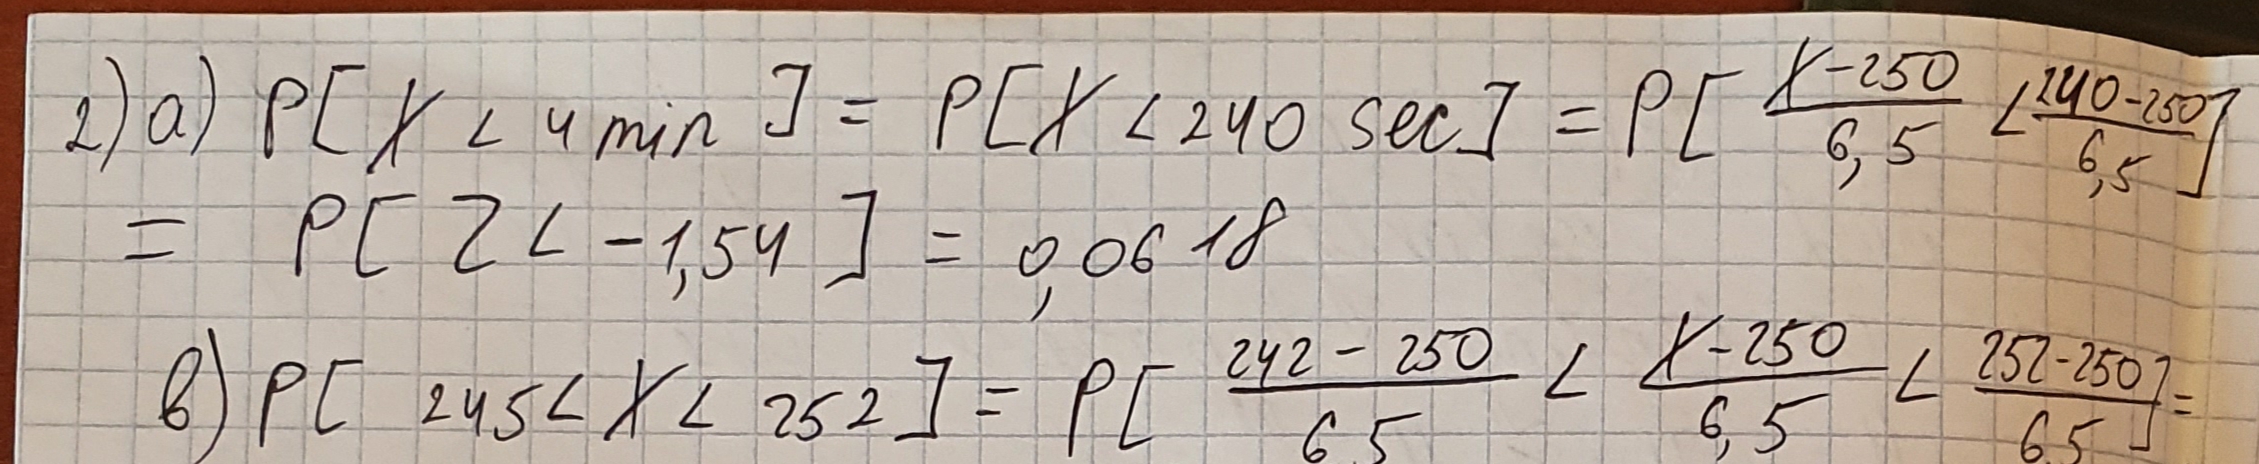 2) a) P[ X < 4 min ] = P[ X < 240 sec ] = P[ X-250 / 6,5 < 240-250 / 6,5 ]
= P[ Z < -1,54 ] = 0,0618
b) P[ 245 < X < 252 ] = P[ 242 - 250 / 6,5 < X-250 / 6,5 < 252-250 / 6,5 ] =